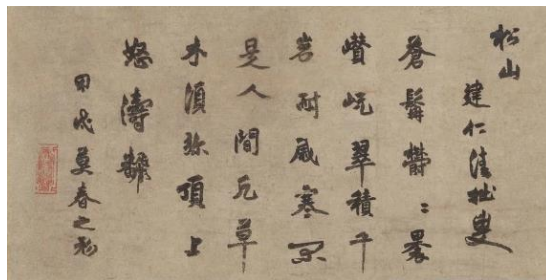 松山
建仁清拙叟
蒼髯鬱〻
巑岏翠積千
岩耐歳寒不
是人間凡草
木須弥頂上
怒濤飜
甲戌莫春之初